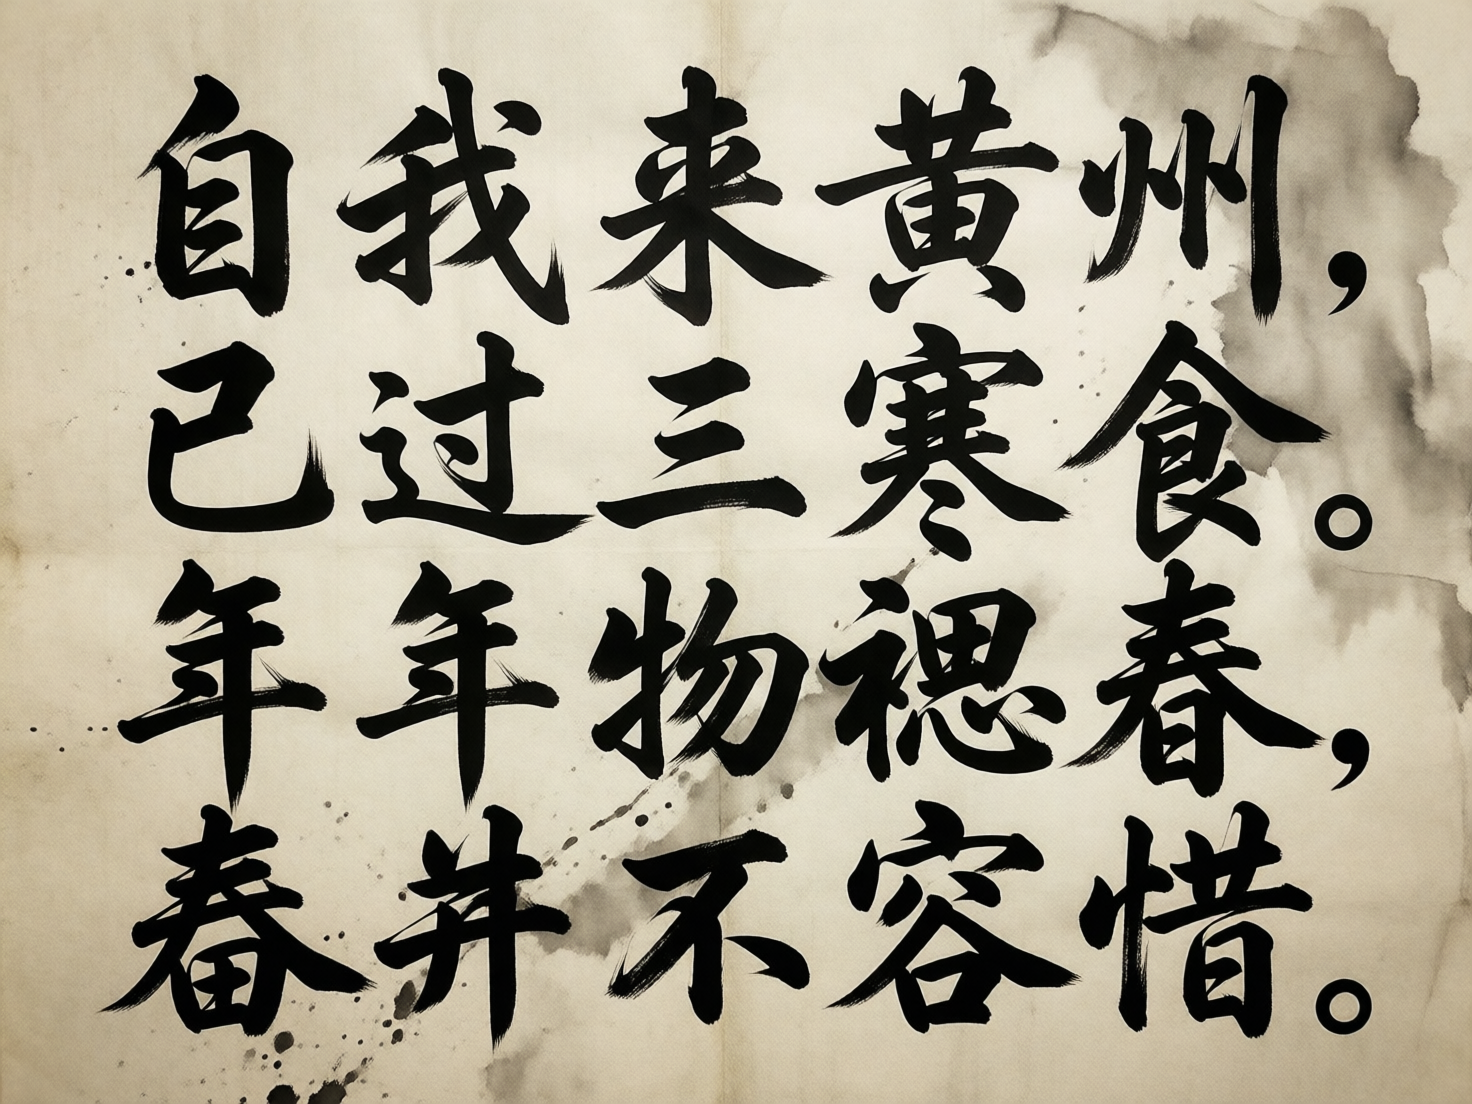 自我来黄州，
已过三寒食。
年年物春，
不容惜。